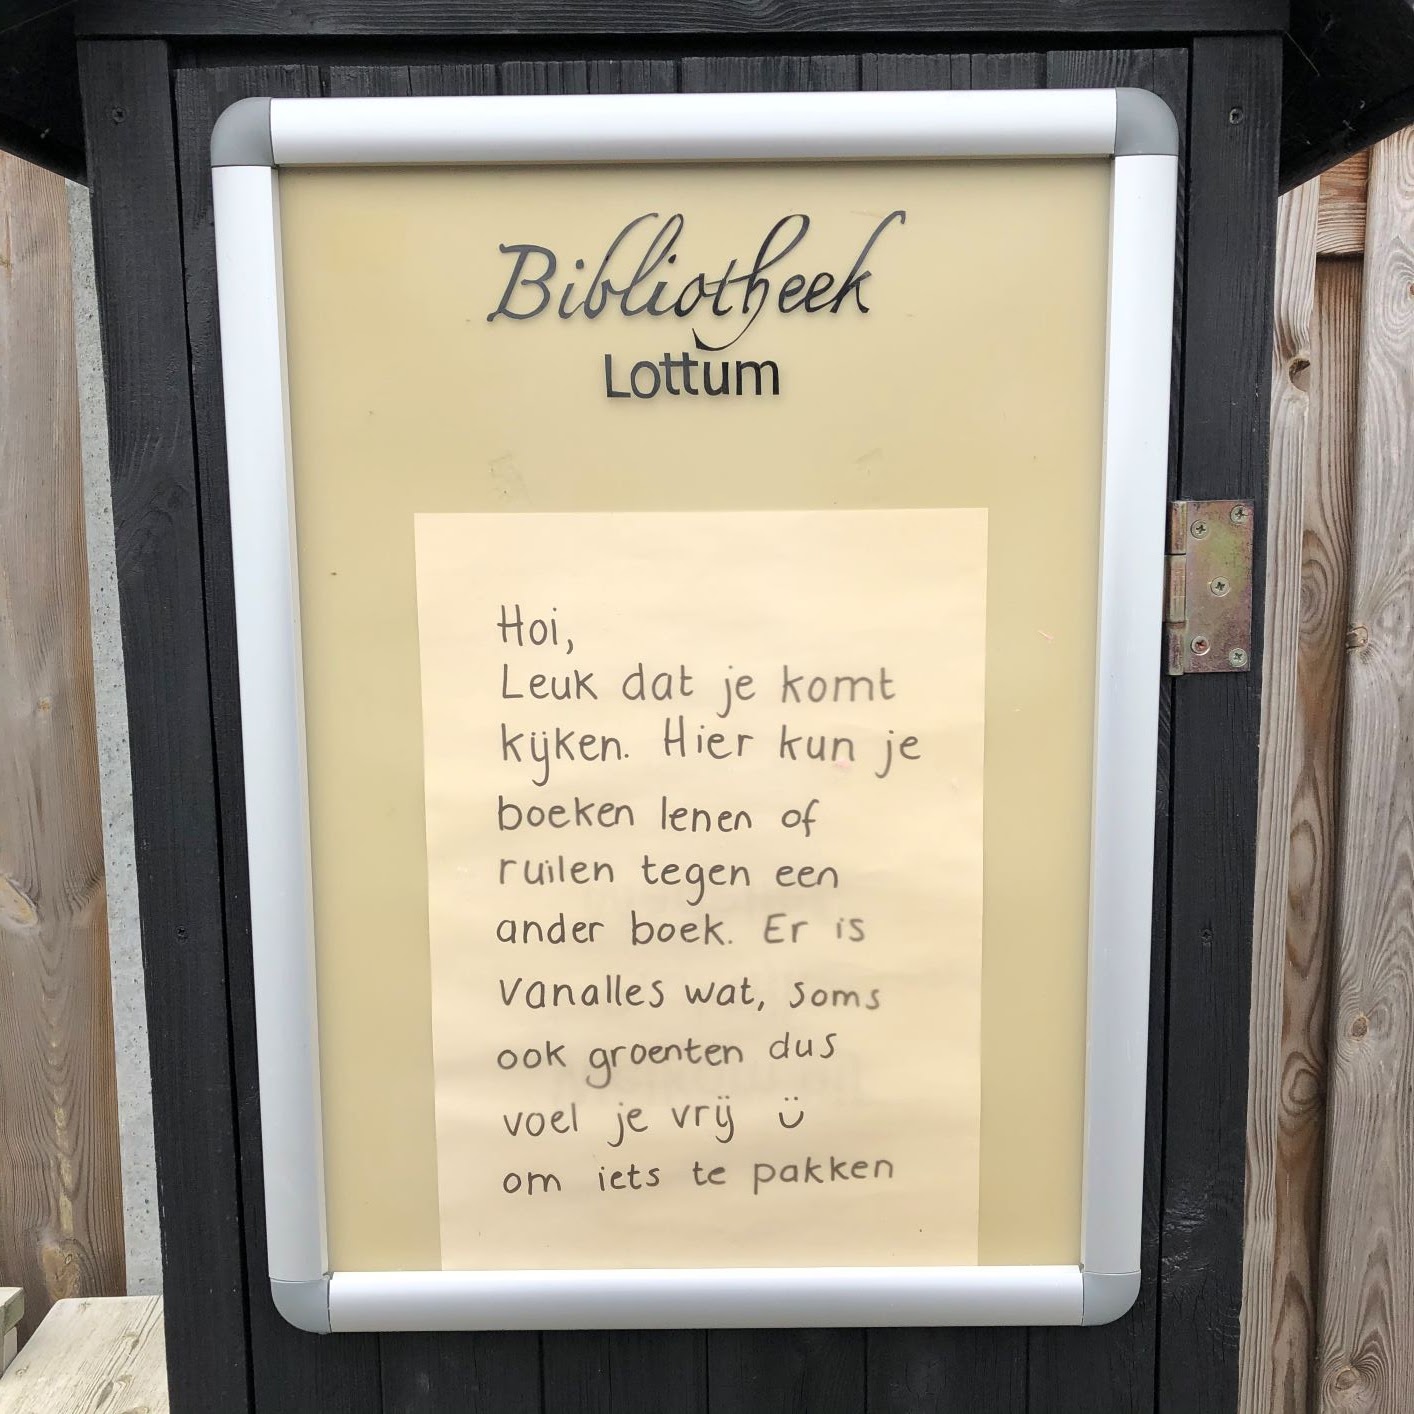 Bibliotheek
Lottum
Hoi,
Leuk dat je komt
kijken. Hier kun je
boeken lenen of
ruilen tegen een
ander boek. Er is
vanalles wat, soms
ook groenten dus
voel je vrij ü
om iets te pakken